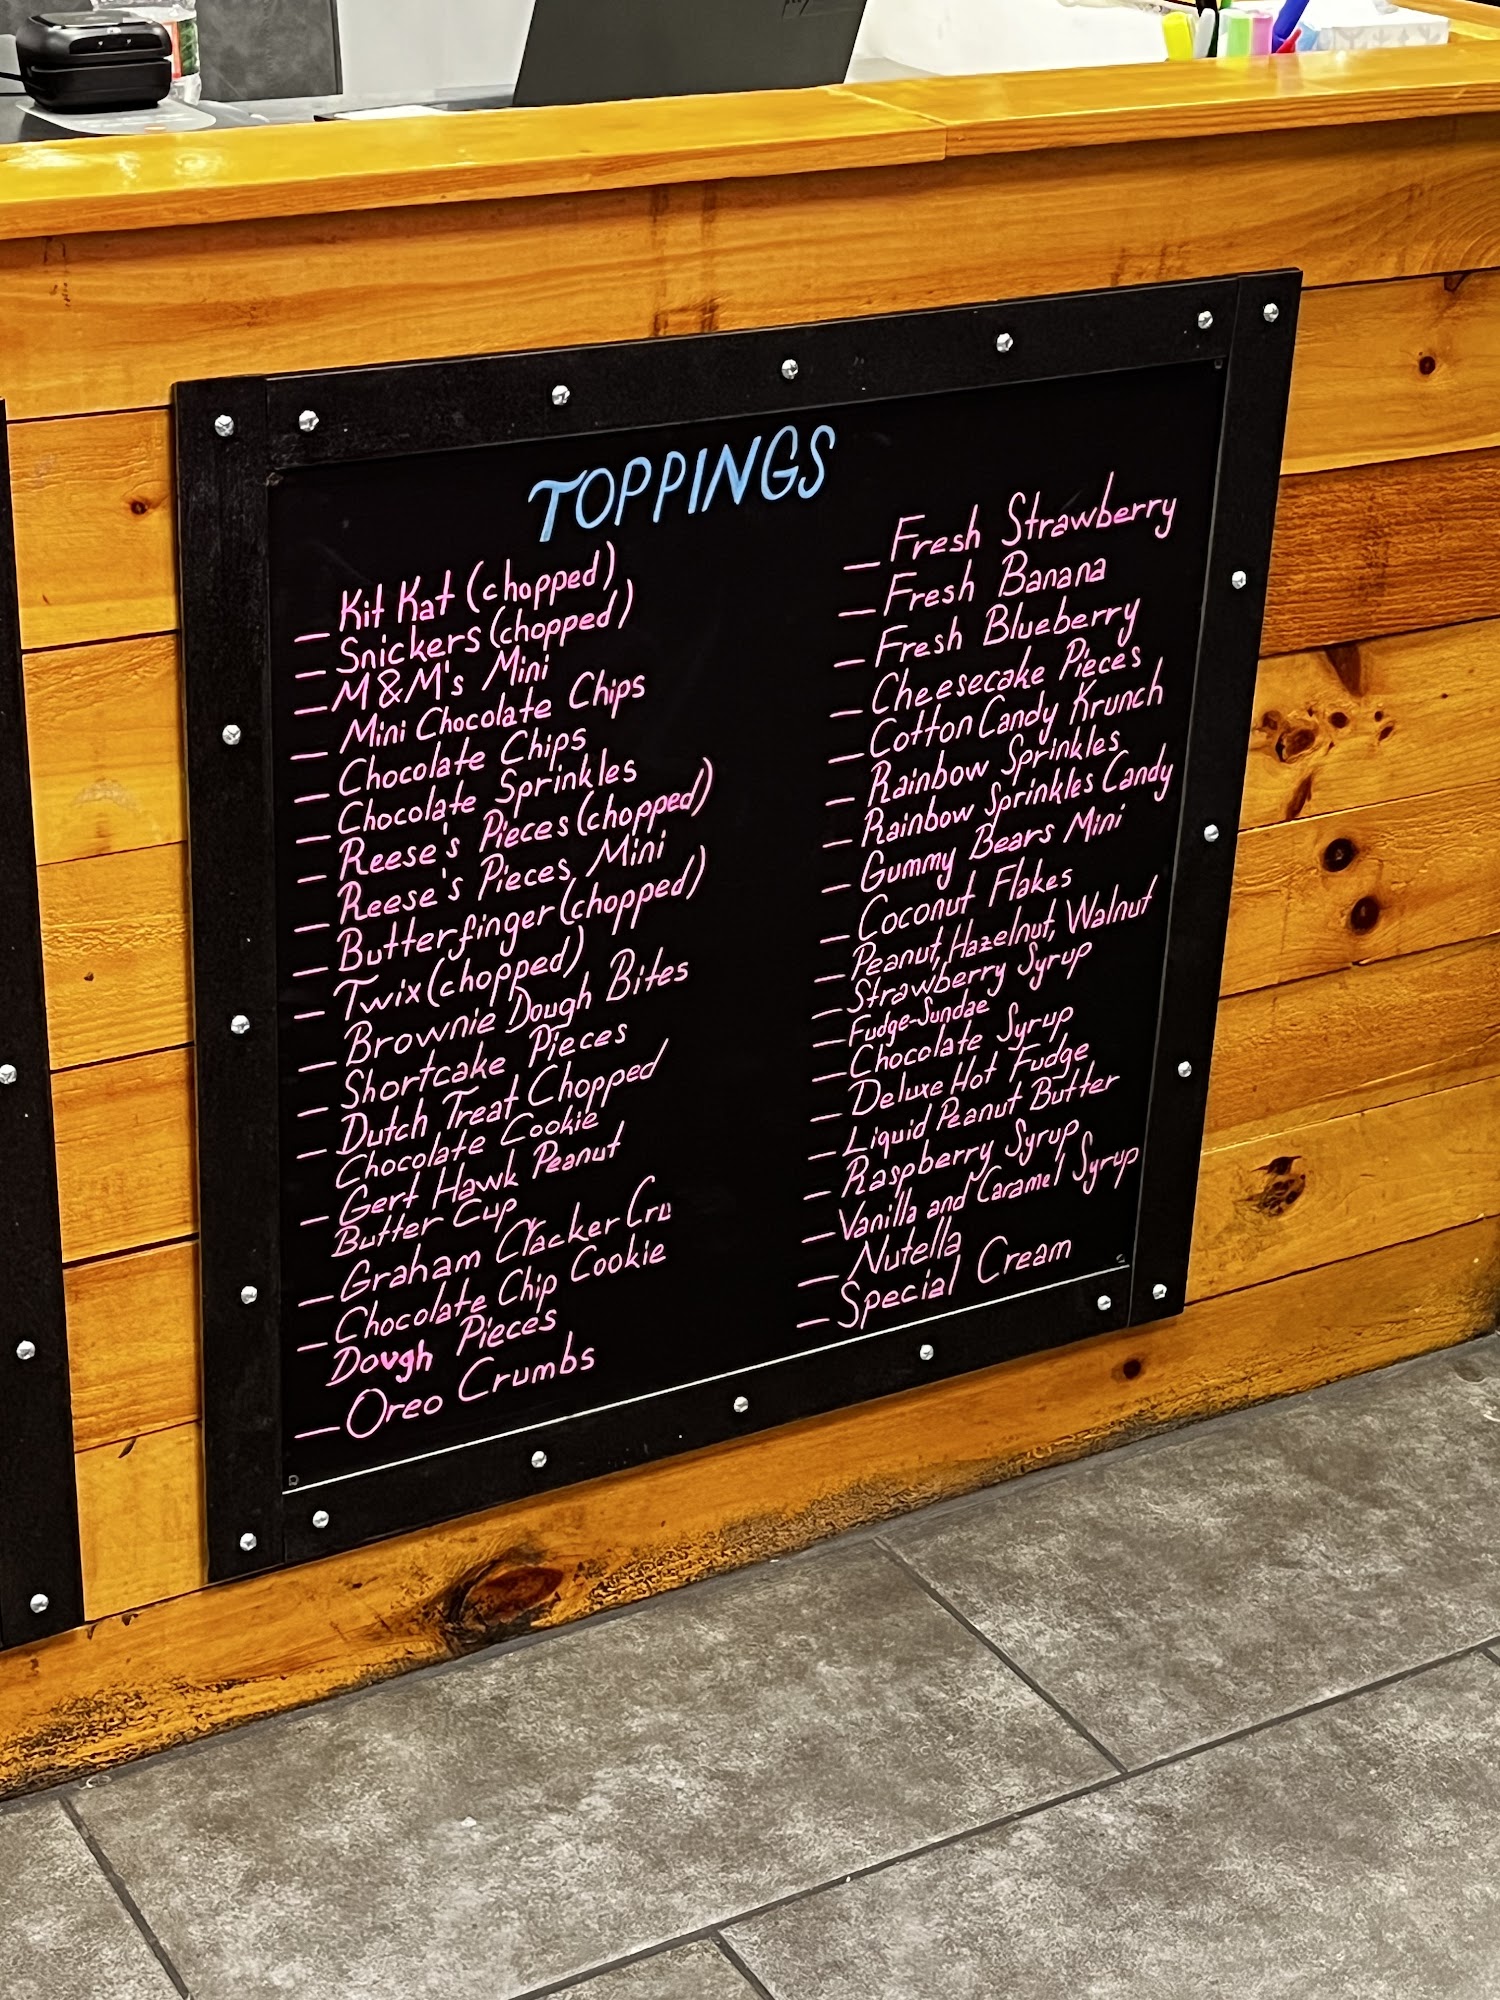 TOPPINGS
_ Kit Kat (chopped)
_ Snickers (chopped)
_ M&M's Mini
_ Mini Chocolate Chips
_ Chocolate Chips
_ Chocolate Sprinkles
_ Reese's Pieces (chopped)
_ Reese's Pieces Mini
_ Butterfinger (chopped)
_ Twix (chopped)
_ Brownie Dough Bites
_ Shortcake Pieces
_ Dutch Treat Chopped
Chocolate Cookie
_ Gert Hawk Peanut
Butter Cup
_ Graham Clacker Cru
_ Chocolate Chip Cookie
Dough Pieces
_ Oreo Crumbs
_ Fresh Strawberry
_ Fresh Banana
_ Fresh Blueberry
_ Cheesecake Pieces
_ Cotton Candy Krunch
_ Rainbow Sprinkles
_ Rainbow Sprinkles Candy
_ Gummy Bears Mini
_ Coconut Flakes
_ Peanut, Hazelnut, Walnut
_ Strawberry Syrup
_ Fudge-Sundae
_ Chocolate Syrup
_ Deluxe Hot Fudge
_ Liquid Peanut Butter
_ Raspberry Syrup
_ Vanilla and Caramel Syrup
_ Nutella
_ Special Cream